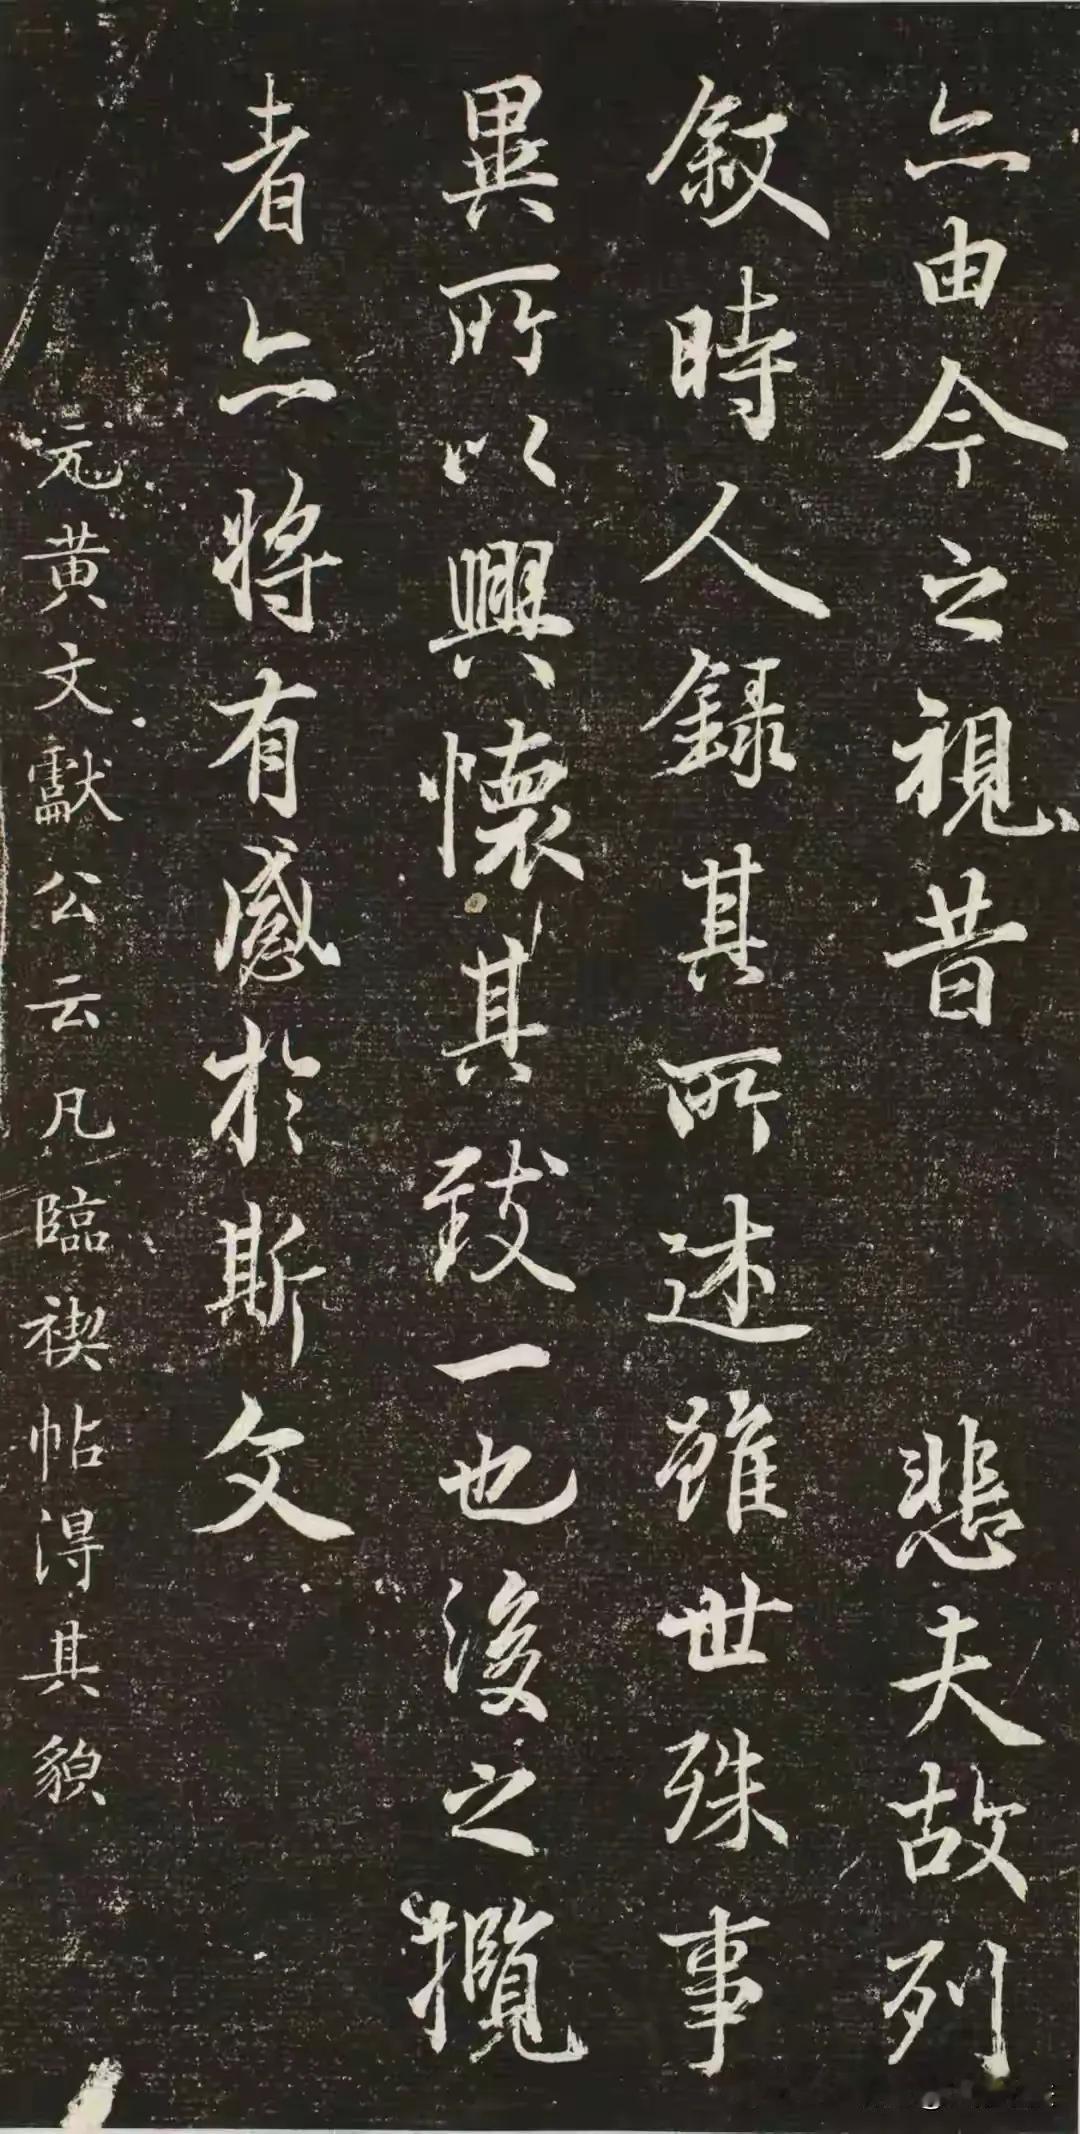 亦由今之視昔 悲夫故列
敘時人錄其所述雖世殊事
異所以興懷其致一也後之攬
者亦將有感於斯文
元黃文獻公云凡臨禊帖得其貌